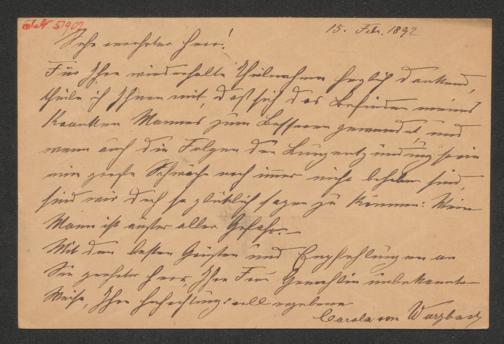 15. Feb. 1892
Sehr verehrter Herr!
Für Ihre wiederholte Theilnahme herzlich dankend,
theile ich Ihnen mit, daß sich das Befinden meines
kranken Mannes zum Besseren gewendet, und
wenn auch die Folgen der Lungenentzündung sowie
eine große Schwäche noch immer nicht behoben sind,
sind wir doch so glücklich sagen zu können: Mein
Mann ist außer aller Gefahr.
Mit den besten Grüßen und Empfehlungen an
Sie geehrter Herr, Ihre Frau Gemahlin unbekannter
Weise, Ihre hochachtungsvoll ergebene
Carola von Wurzbach